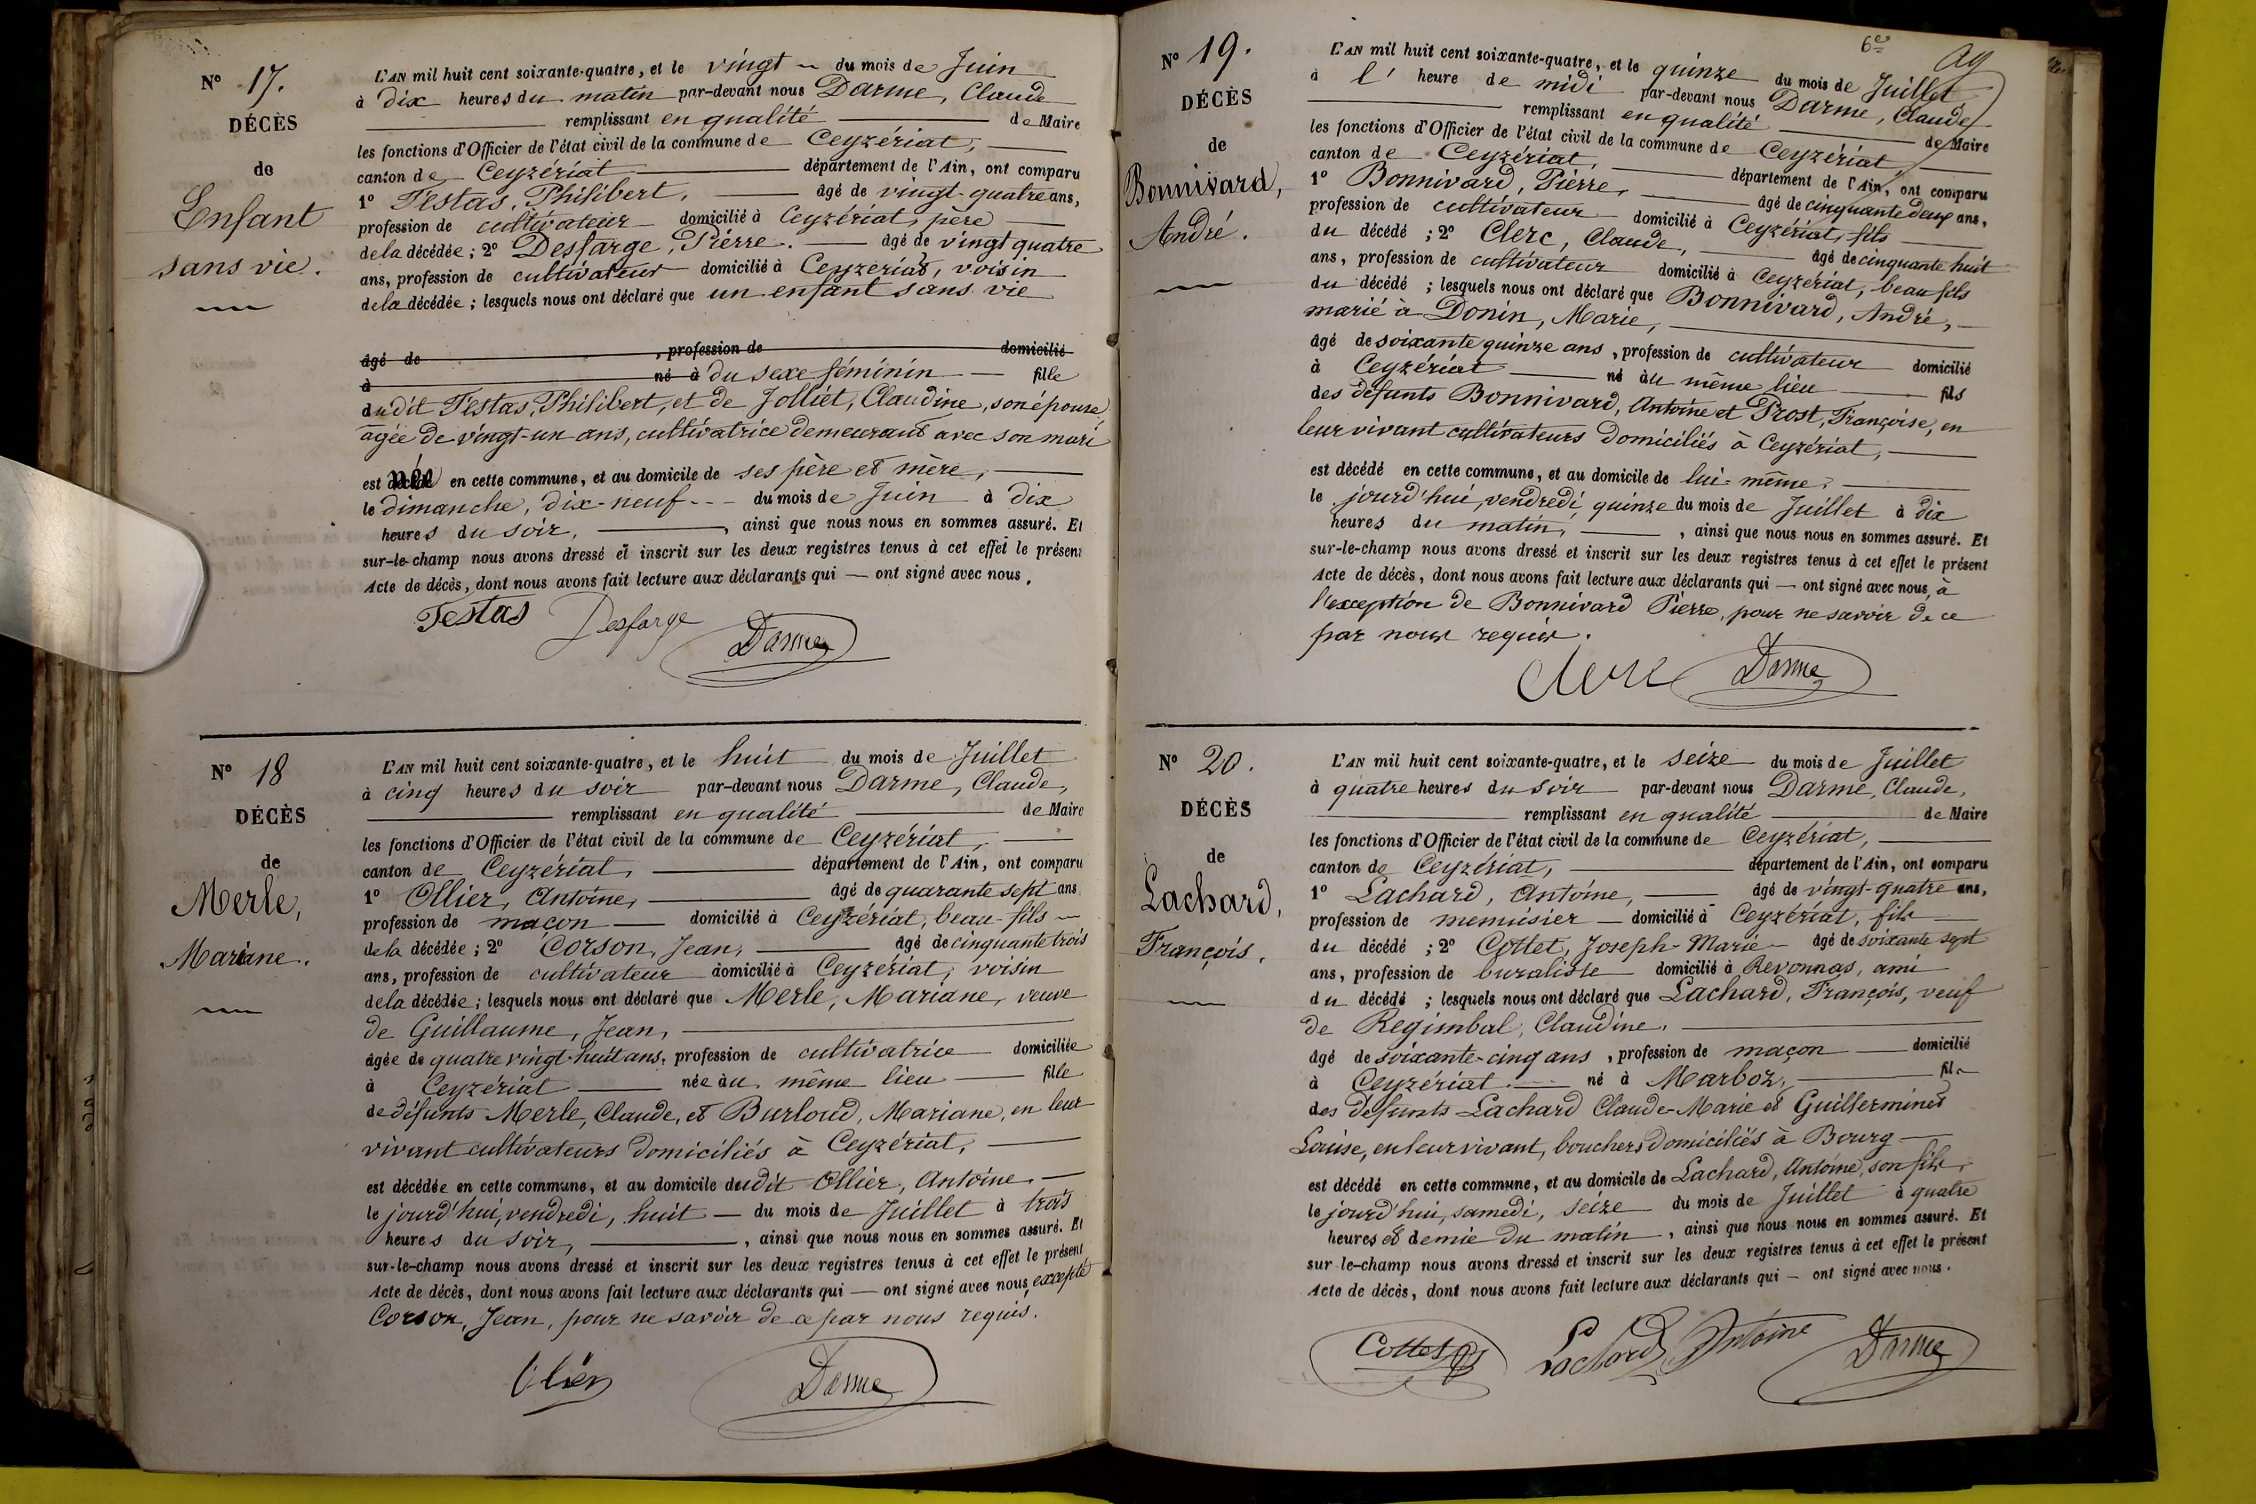 N° 17.
DÉCÈS
de
Enfant
sans vie.
L'AN mil huit cent soixante-quatre, et le vingt du mois de Juin
à dix heures du matin par-devant nous Darme, Claude
remplissant en qualité de Maire
les fonctions d'Officier de l'état civil de la commune de Ceyzériat,
canton de Ceyzériat département de l'Ain, ont comparu
1° Testas, Philibert, âgé de vingt-quatre ans,
profession de cultivateur domicilié à Ceyzériat, père
de la décédée; 2° Desfarge, Pierre. âgé de vingt quatre
ans, profession de cultivateur domicilié à Ceyzériat, voisin
de la décédée; lesquels nous ont déclaré que un enfant sans vie
âgé de , profession de domicilié
à né à du sexe féminin fille
dudit Testas, Philibert, et de Jolliet, Claudine, son épouse
âgée de vingt-un ans, cultivatrice demeurant avec son mari
est née en cette commune, et au domicile de ses père et mère,
le dimanche, dix-neuf du mois de Juin à dix
heures du soir, , ainsi que nous nous en sommes assuré. Et
sur-le-champ nous avons dressé et inscrit sur les deux registres tenus à cet effet le présent
Acte de décès, dont nous avons fait lecture aux déclarants qui — ont signé avec nous.
Testas Desfarge Darme
N° 18
DÉCÈS
de
Merle,
Mariane.
L'AN mil huit cent soixante-quatre, et le huit du mois de Juillet
à cinq heures du soir par-devant nous Darme, Claude,
remplissant en qualité de Maire
les fonctions d'Officier de l'état civil de la commune de Ceyzériat,
canton de Ceyzériat, département de l'Ain, ont comparu
1° Ollier, Antoine, âgé de quarante sept ans
profession de maçon domicilié à Ceyzériat, beau-fils
de la décédée; 2° Corson, Jean, âgé de cinquante trois
ans, profession de cultivateur domicilié à Ceyzériat, voisin
de la décédée; lesquels nous ont déclaré que Merle, Mariane, veuve
de Guillaume, Jean,
âgée de quatre vingt-huit ans, profession de cultivatrice domiciliée
à Ceyzériat née au même lieu fille
de défunts Merle, Claude, et Burloud, Mariane, en leur
vivant cultivateurs domiciliés à Ceyzériat,
est décédée en cette commune, et au domicile dudit Ollier, Antoine
le jourd'hui, vendredi, huit du mois de Juillet à trois
heures du soir, , ainsi que nous nous en sommes assuré. Et
sur-le-champ nous avons dressé et inscrit sur les deux registres tenus à cet effet le présent
Acte de décès, dont nous avons fait lecture aux déclarants qui — ont signé avec nous, excepté
Corson, Jean, pour ne savoir de ce par nous requis.
Ollier Darme
6e
N° 19.
DÉCÈS
de
Bonnivard,
André.
L'AN mil huit cent soixante-quatre, et le quinze du mois de Juillet
à l'heure de midi par-devant nous Darme, Claude
remplissant en qualité de Maire
les fonctions d'Officier de l'état civil de la commune de Ceyzériat
canton de Ceyzériat, département de l'Ain, ont comparu
1° Bonnivard, Pierre, âgé de cinquante deux ans,
profession de cultivateur domicilié à Ceyzériat, fils
du décédé; 2° Clerc, Claude, âgé de cinquante huit
ans, profession de cultivateur domicilié à Ceyzériat, beau fils
du décédé; lesquels nous ont déclaré que Bonnivard, André,
marié à Donin, Marie,
âgé de soixante quinze ans, profession de cultivateur domicilié
à Ceyzériat né au même lieu fils
des défunts Bonnivard, Antoine et Prost, Françoise, en
leur vivant cultivateurs domiciliés à Ceyzériat,
est décédé en cette commune, et au domicile de lui-même,
le jourd'hui, vendredi, quinze du mois de Juillet à dix
heures du matin, , ainsi que nous nous en sommes assuré. Et
sur-le-champ nous avons dressé et inscrit sur les deux registres tenus à cet effet le présent
Acte de décès, dont nous avons fait lecture aux déclarants qui — ont signé avec nous, à
l'exception de Bonnivard Pierre, pour ne savoir de ce
par nous requis.
Clerc Darme
N° 20.
DÉCÈS
de
Lachard,
François.
L'AN mil huit cent soixante-quatre, et le seize du mois de Juillet
à quatre heures du soir par-devant nous Darme, Claude,
remplissant en qualité de Maire
les fonctions d'Officier de l'état civil de la commune de Ceyzériat,
canton de Ceyzériat, département de l'Ain, ont comparu
1° Lachard, Antoine, âgé de vingt-quatre ans,
profession de menuisier domicilié à Ceyzériat, fils
du décédé; 2° Cottet, Joseph-Marie âgé de soixante sept
ans, profession de buraliste domicilié à Revonnas, ami
du décédé; lesquels nous ont déclaré que Lachard, François, veuf
de Regimbal, Claudine.
âgé de soixante-cinq ans, profession de maçon domicilié
à Ceyzériat né à Marboz, fils
des défunts Lachard Claude-Marie et Guillerminet
Louise, en leur vivant, bouchers domiciliés à Bourg
est décédé en cette commune, et au domicile de Lachard, Antoine, son fils,
le jourd'hui, samedi, seize du mois de Juillet à quatre
heures et demie du matin, ainsi que nous nous en sommes assuré. Et
sur-le-champ nous avons dressé et inscrit sur les deux registres tenus à cet effet le présent
Acte de décès, dont nous avons fait lecture aux déclarants qui — ont signé avec nous.
Cottet Lachard Antoine Darme